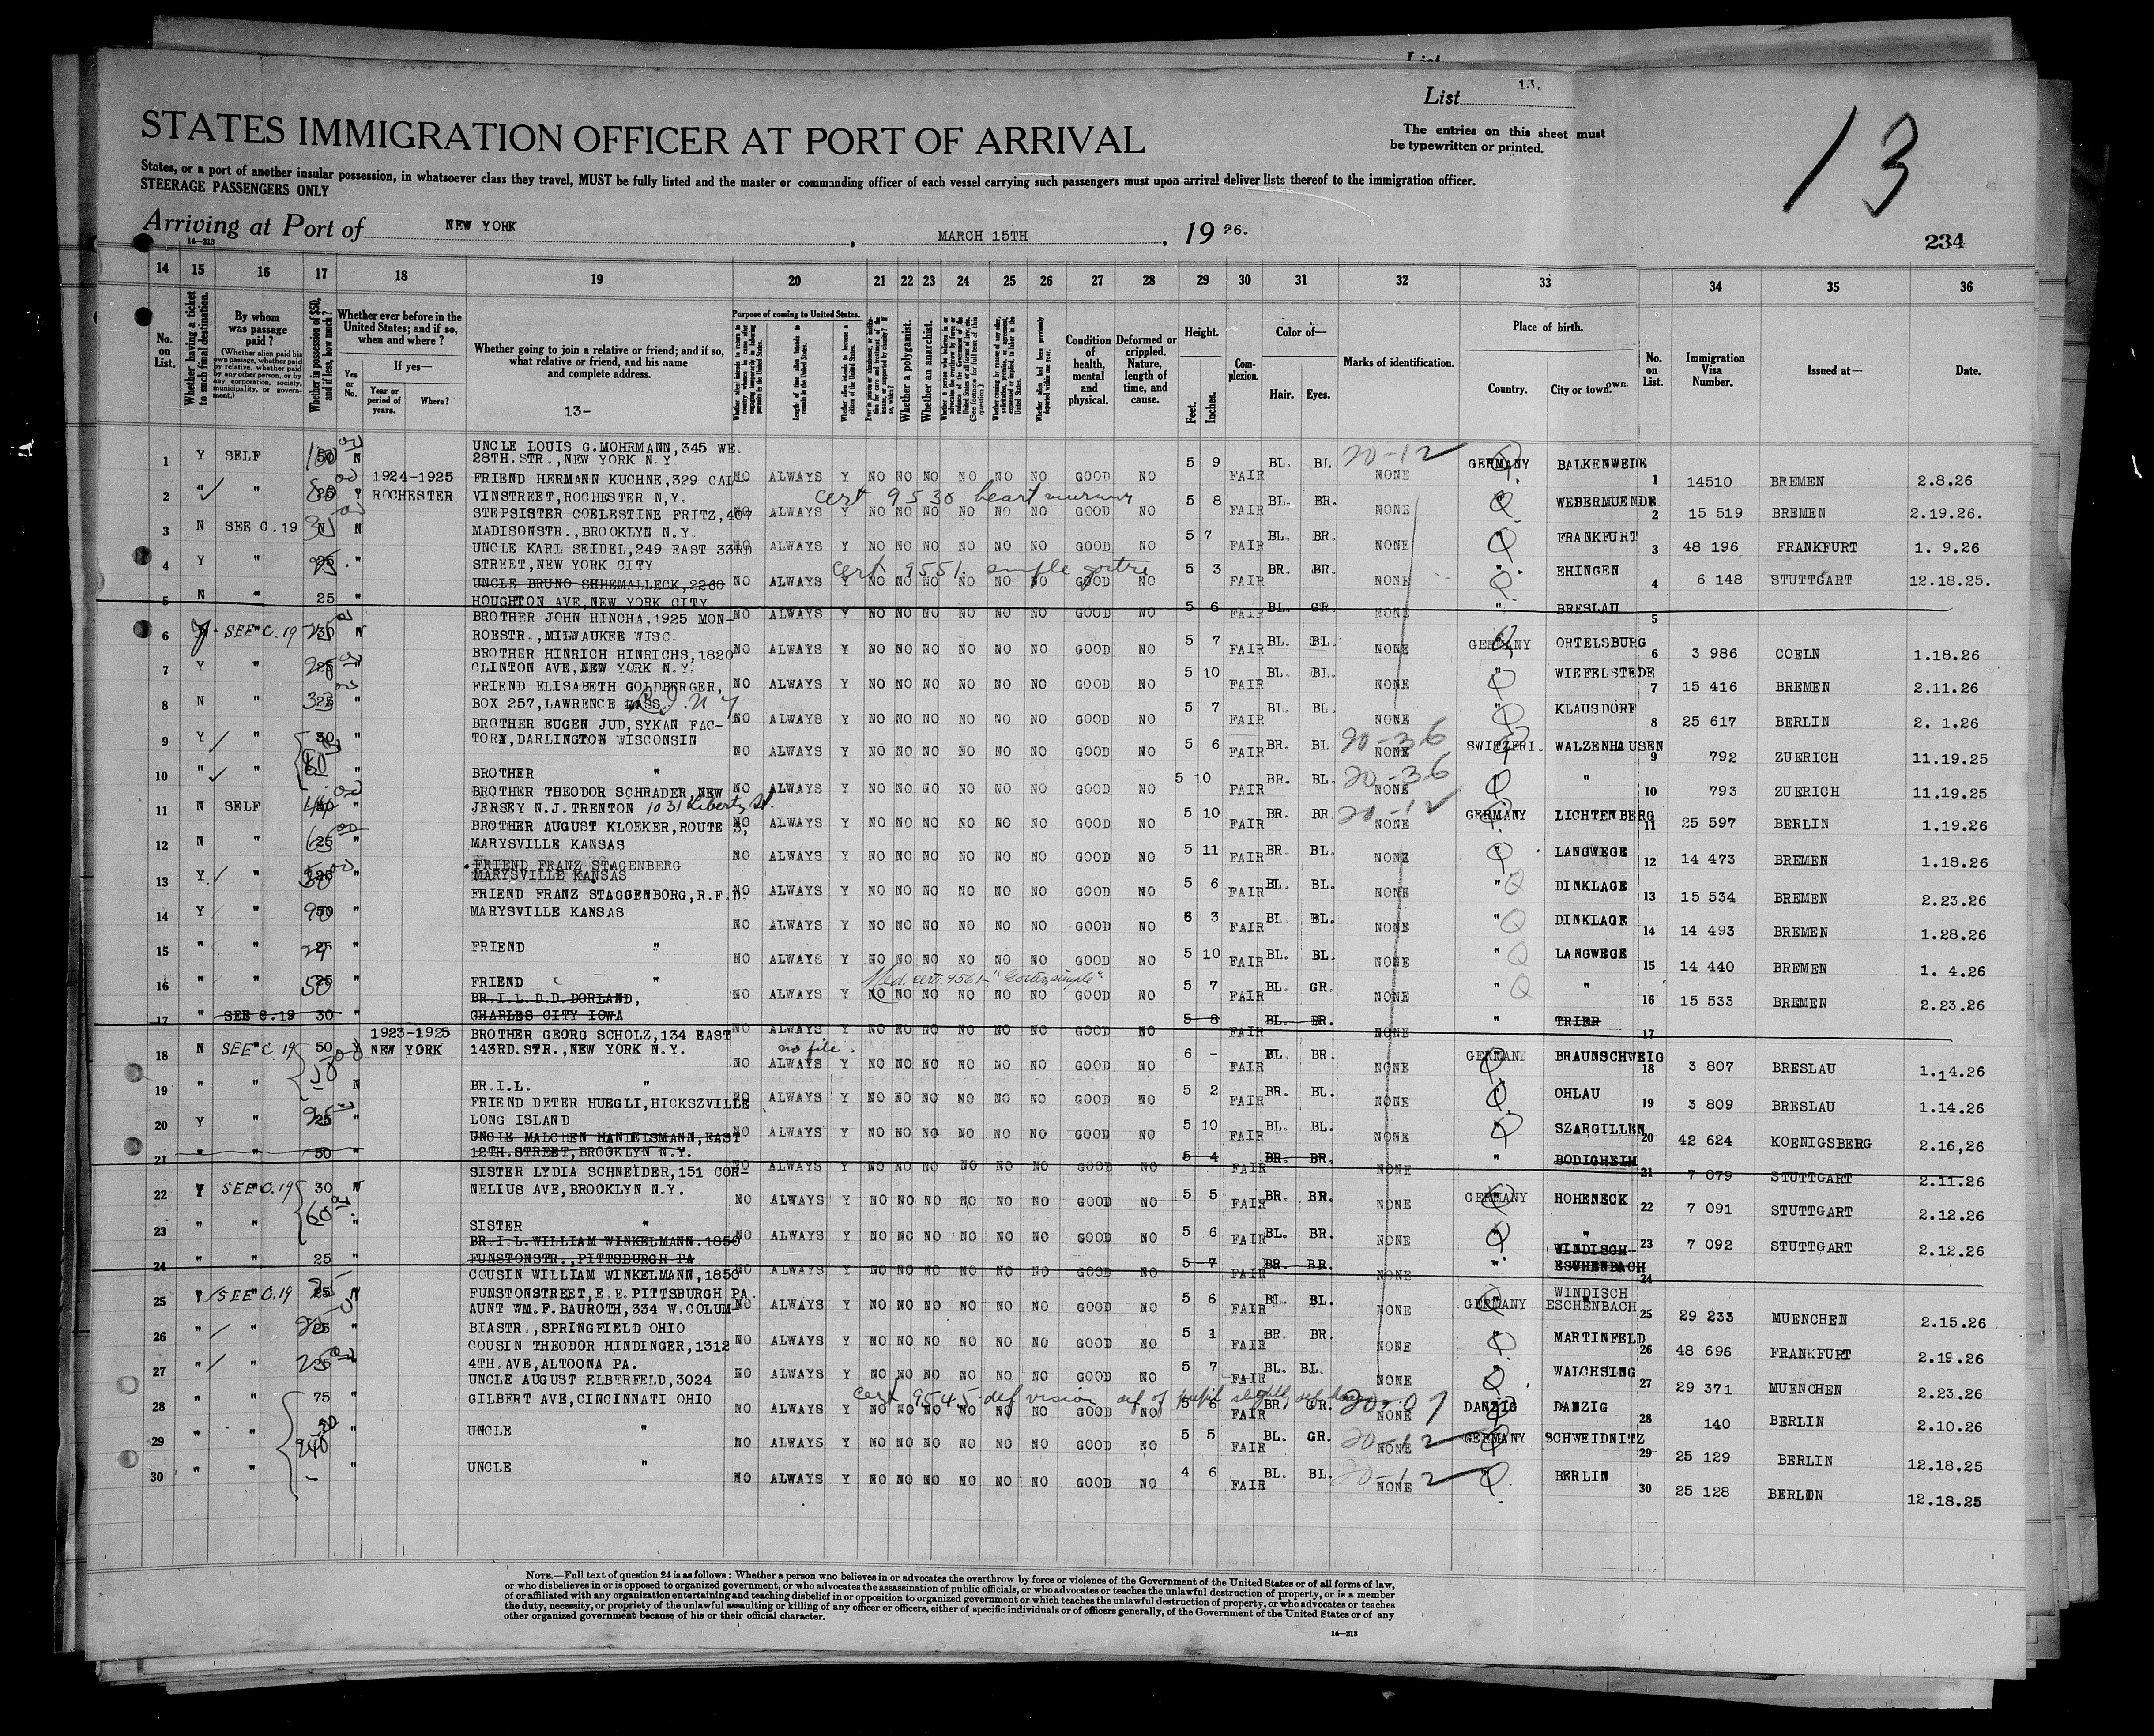 List 13.
STATES IMMIGRATION OFFICER AT PORT OF ARRIVAL
The entries on this sheet must
be typewritten or printed.
13
States, or a port of another insular possession, in whatsoever class they travel, MUST be fully listed and the master or commanding officer of each vessel carrying such passengers must upon arrival deliver lists thereof to the immigration officer.
STEERAGE PASSENGERS ONLY
Arriving at Port of NEW YORK, MARCH 15TH, 19 26.
234
14—313
14 15 16 17 18 19 20 21 22 23 24 25 26 27 28 29 30 31 32 33 34 35 36
No. on List.
Whether having a ticket to such final destination.
By whom was passage paid?
(Whether alien paid his own passage, whether paid by relative, whether paid by any other person, or by any corporation, society, municipality, or government.)
Whether in possession of $50, and if less, how much?
Whether ever before in the United States; and if so, when and where?
Yes or No.
If yes—
Year or period of years.
Where?
Whether going to join a relative or friend; and if so, what relative or friend, and his name and complete address.
13-
Purpose of coming to United States.
Length of time alien intends to remain in the United States.
Whether a polygamist.
Whether an anarchist.
Condition of health, mental and physical.
Deformed or crippled. Nature, length of time, and cause.
Height.
Feet. Inches.
Complexion.
Color of—
Hair. Eyes.
Marks of identification.
Place of birth.
Country. City or town.
No. on List.
Immigration Visa Number.
Issued at—
Date.
1 Y SELF 50 N UNCLE LOUIS G.MOHRMANN,345 WE.
28TH.STR.,NEW YORK N.Y. NO ALWAYS Y NO NO NO NO NO NO GOOD NO 5 9 FAIR BL. BL 20-12 NONE GERMANY BALKENWEDE 1 14510 BREMEN 2.8.26
2 " " 25 Y 1924-1925 ROCHESTER FRIEND HERMANN KUCHNE,329 CAL
VINSTREET,ROCHESTER N,Y. cert 9530 heart murmur NO ALWAYS Y NO NO NO NO NO NO GOOD NO 5 8 FAIR BL. BR. NONE " WESERMUENDE 2 15 519 BREMEN 2.19.26.
3 N SEE C.19 N N STEPSISTER COELESTINE FRITZ,407
MADISONSTR.,BROOKLYN N.Y. NO ALWAYS Y NO NO NO NO NO NO GOOD NO 5 7 FAIR BL. BR. NONE " FRANKFURT 3 48 196 FRANKFURT 1. 9.26
4 Y " 25 " UNCLE KARL SEIDEL,249 EAST 33RD
STREET,NEW YORK CITY cert 9551. simple goitre NO ALWAYS Y NO NO NO NO NO NO GOOD NO 5 3 FAIR BR. BR. NONE " EHINGEN 4 6 148 STUTTGART 12.18.25.
5 N " 25 " UNCLE BRUNO SHHEMALLECK,2260
HOUGHTON AVE,NEW YORK CITY NO ALWAYS Y NO NO NO NO NO NO GOOD NO 5 6 FAIR BL. GR. NONE " BRESLAU 5
6 Y SEE C.19 30 N BROTHER JOHN HINCHA,1925 MON-
ROESTR.,MILWAUKEE WISC. NO ALWAYS Y NO NO NO NO NO NO GOOD NO 5 7 FAIR BL. BL. NONE GERMANY ORTELSBURG 6 3 986 COELN 1.18.26
7 Y " 25 " BROTHER HINRICH HINRICHS,1820
CLINTON AVE,NEW YORK N.Y. NO ALWAYS Y NO NO NO NO NO NO GOOD NO 5 10 FAIR BL. BL. NONE " WIEFELSTEDE 7 15 416 BREMEN 2.11.26
8 N " " FRIEND ELISABETH GOLDBERGER,
BOX 257,LAWRENCE MASS L.I. N.Y NO ALWAYS Y NO NO NO NO NO NO GOOD NO 5 7 FAIR BL. BL. NONE " KLAUSDORF 8 25 617 BERLIN 2. 1.26
9 Y " 30 " BROTHER EUGEN JUD,SYKAN FAC-
TORY,DARLINGTON WISCONSIN NO ALWAYS Y NO NO NO NO NO NO GOOD NO 5 6 FAIR BR. BL 20-36 NONE SWITZERL. WALZENHAUSEN 9 792 ZUERICH 11.19.25
10 " " " BROTHER " NO ALWAYS Y NO NO NO NO NO NO GOOD NO 5 10 FAIR BR. BL. 20-36 NONE " " 10 793 ZUERICH 11.19.25
11 N SELF " BROTHER THEODOR SCHRADER,NEW
JERSEY N.J.TRENTON 1031 Liberty St. NO ALWAYS Y NO NO NO NO NO NO GOOD NO 5 10 FAIR BR. BR 20-12 NONE GERMANY LICHTENBERG 11 25 597 BERLIN 1.19.26
12 N " 25 " BROTHER AUGUST KLOEKER,ROUTE 3,
MARYSVILLE KANSAS NO ALWAYS Y NO NO NO NO NO NO GOOD NO 5 11 FAIR BR. BL. NONE " LANGWEGE 12 14 473 BREMEN 1.18.26
13 Y " 25 " FRIEND FRANZ STAGENBERG
MARYSVILLE KANSAS NO ALWAYS Y NO NO NO NO NO NO GOOD NO 5 6 FAIR BL. BL. NONE " DINKLAGE 13 15 534 BREMEN 2.23.26
14 Y " 50 " FRIEND FRANZ STAGGENBORG,R.F.D.
MARYSVILLE KANSAS NO ALWAYS Y NO NO NO NO NO NO GOOD NO 6 3 FAIR BL. BL. NONE " DINKLAGE 14 14 493 BREMEN 1.28.26
15 " " 25 " FRIEND " NO ALWAYS Y NO NO NO NO NO NO GOOD NO 5 10 FAIR BL. BL. NONE " LANGWEGE 15 14 440 BREMEN 1. 4.26
16 " " 25 " FRIEND " Med. cert. 9561- "Goiter, simple" NO ALWAYS Y NO NO NO NO NO NO GOOD NO 5 7 FAIR BL. GR. NONE " " 16 15 533 BREMEN 2.23.26
17 " SEE C.19 30 " BR.I.L.D.D.DORLAND,
CHARLES CITY IOWA NO ALWAYS Y NO NO NO NO NO NO GOOD NO 5 8 FAIR BL. BR. NONE " TRIER 17
18 N SEE C.19 50 Y 1923-1925 NEW YORK BROTHER GEORG SCHOLZ,134 EAST
143RD.STR.,NEW YORK N.Y. no file. NO ALWAYS Y NO NO NO NO NO NO GOOD NO 6 - FAIR BL. BR. NONE GERMANY BRAUNSCHWEIG 18 3 807 BRESLAU 1.14.26
19 " " N BR.I.L. " NO ALWAYS Y NO NO NO NO NO NO GOOD NO 5 2 FAIR BR. BL. NONE " OHLAU 19 3 809 BRESLAU 1.14.26
20 Y " 25 " FRIEND DETER HUEGLI,HICKSZVILLE
LONG ISLAND NO ALWAYS Y NO NO NO NO NO NO GOOD NO 5 10 FAIR BL. BL. NONE " SZARGILLEN 20 42 624 KOENIGSBERG 2.16,26
21 " " 50 " UNCLE MALCHEN HANDELSMANN,EAST
12TH.STREET,BROOKLYN N.Y. NO ALWAYS Y NO NO NO NO NO NO GOOD NO 5 4 FAIR BR. BR. NONE " BODIGHEIM 21 7 079 STUTTGART 2.11.26
22 Y SEE C.19 30 N SISTER LYDIA SCHNEIDER,151 COR-
NELIUS AVE,BROOKLYN N.Y. NO ALWAYS Y NO NO NO NO NO NO GOOD NO 5 5 FAIR BR. BR. NONE GERMANY HOHENECK 22 7 091 STUTTGART 2.12.26
23 " " " SISTER " NO ALWAYS Y NO NO NO NO NO NO GOOD NO 5 6 FAIR BL. BR. NONE " " 23 7 092 STUTTGART 2.12.26
24 " " 25 " BR.I.L.WILLIAM WINKELMANN.1850
FUNSTONSTR.,PITTSBURGH PA NO ALWAYS Y NO NO NO NO NO NO GOOD NO 5 7 FAIR BR. BR. NONE " WINDISCH ESCHENBACH 24
25 Y SEE C.19 25 N COUSIN WILLIAM WINKELMANN,1850
FUNSTONSTREET,E.E.PITTSBURGH PA. NO ALWAYS Y NO NO NO NO NO NO GOOD NO 5 6 FAIR BL. BL. NONE GERMANY WINDISCH ESCHENBACH 25 29 233 MUENCHEN 2.15.26
26 " " 25 " AUNT WM.F.BAUROTH,334 W.COLUM-
BIASTR.,SPRINGFIELD OHIO NO ALWAYS Y NO NO NO NO NO NO GOOD NO 5 1 FAIR BR. BR. NONE " MARTINFELD 26 48 696 FRANKFURT 2.19.26
27 " " 25 " COUSIN THEODOR HINDINGER,1312
4TH.AVE,ALTOONA PA. NO ALWAYS Y NO NO NO NO NO NO GOOD NO 5 7 FAIR BL. BL. NONE " WALCHSING 27 29 371 MUENCHEN 2.23.26
28 " " 75 " UNCLE AUGUST ELBERFELD,3024
GILBERT AVE,CINCINNATI OHIO cert 9545 def vision NO ALWAYS Y NO NO NO NO NO NO GOOD NO 5 6 FAIR BR. GR. NONE DANZIG DANZIG 28 140 BERLIN 2.10.26
29 " " " UNCLE " NO ALWAYS Y NO NO NO NO NO NO GOOD NO 5 5 FAIR BL. GR. 20-12 NONE GERMANY SCHWEIDNITZ 29 25 129 BERLIN 12.18.25
30 " " " UNCLE " NO ALWAYS Y NO NO NO NO NO NO GOOD NO 4 6 FAIR BL. BL. 20-12 NONE " BERLIN 30 25 128 BERLIN 12.18.25
NOTE.—Full text of question 24 is as follows: Whether a person who believes in or advocates the overthrow by force or violence of the Government of the United States or of all forms of law,
or who disbelieves in or is opposed to organized government, or who advocates the assassination of public officials, or who advocates or teaches the unlawful destruction of property, or is a member
of or affiliated with any organization entertaining and teaching disbelief in or opposition to organized government or which teaches the unlawful destruction of property, or who advocates or teaches
the duty, necessity, or propriety of the unlawful assaulting or killing of any officer or officers, either of specific individuals or of officers generally, of the Government of the United States or of any
other organized government because of his or their official character.
14—313